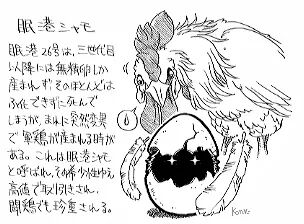 眠港シャモ
眠港26号は、三世代目
以降には無精卵しか
産まれず、そのほとんどは
ふ化できずに死んで
しまうが、まれに突然変異
で軍鶏が産まれる時が
ある。これは眠港シャモ
と呼ばれ、その希少性ゆえ
高値で取引きされ、
闘鶏でも珍重される。